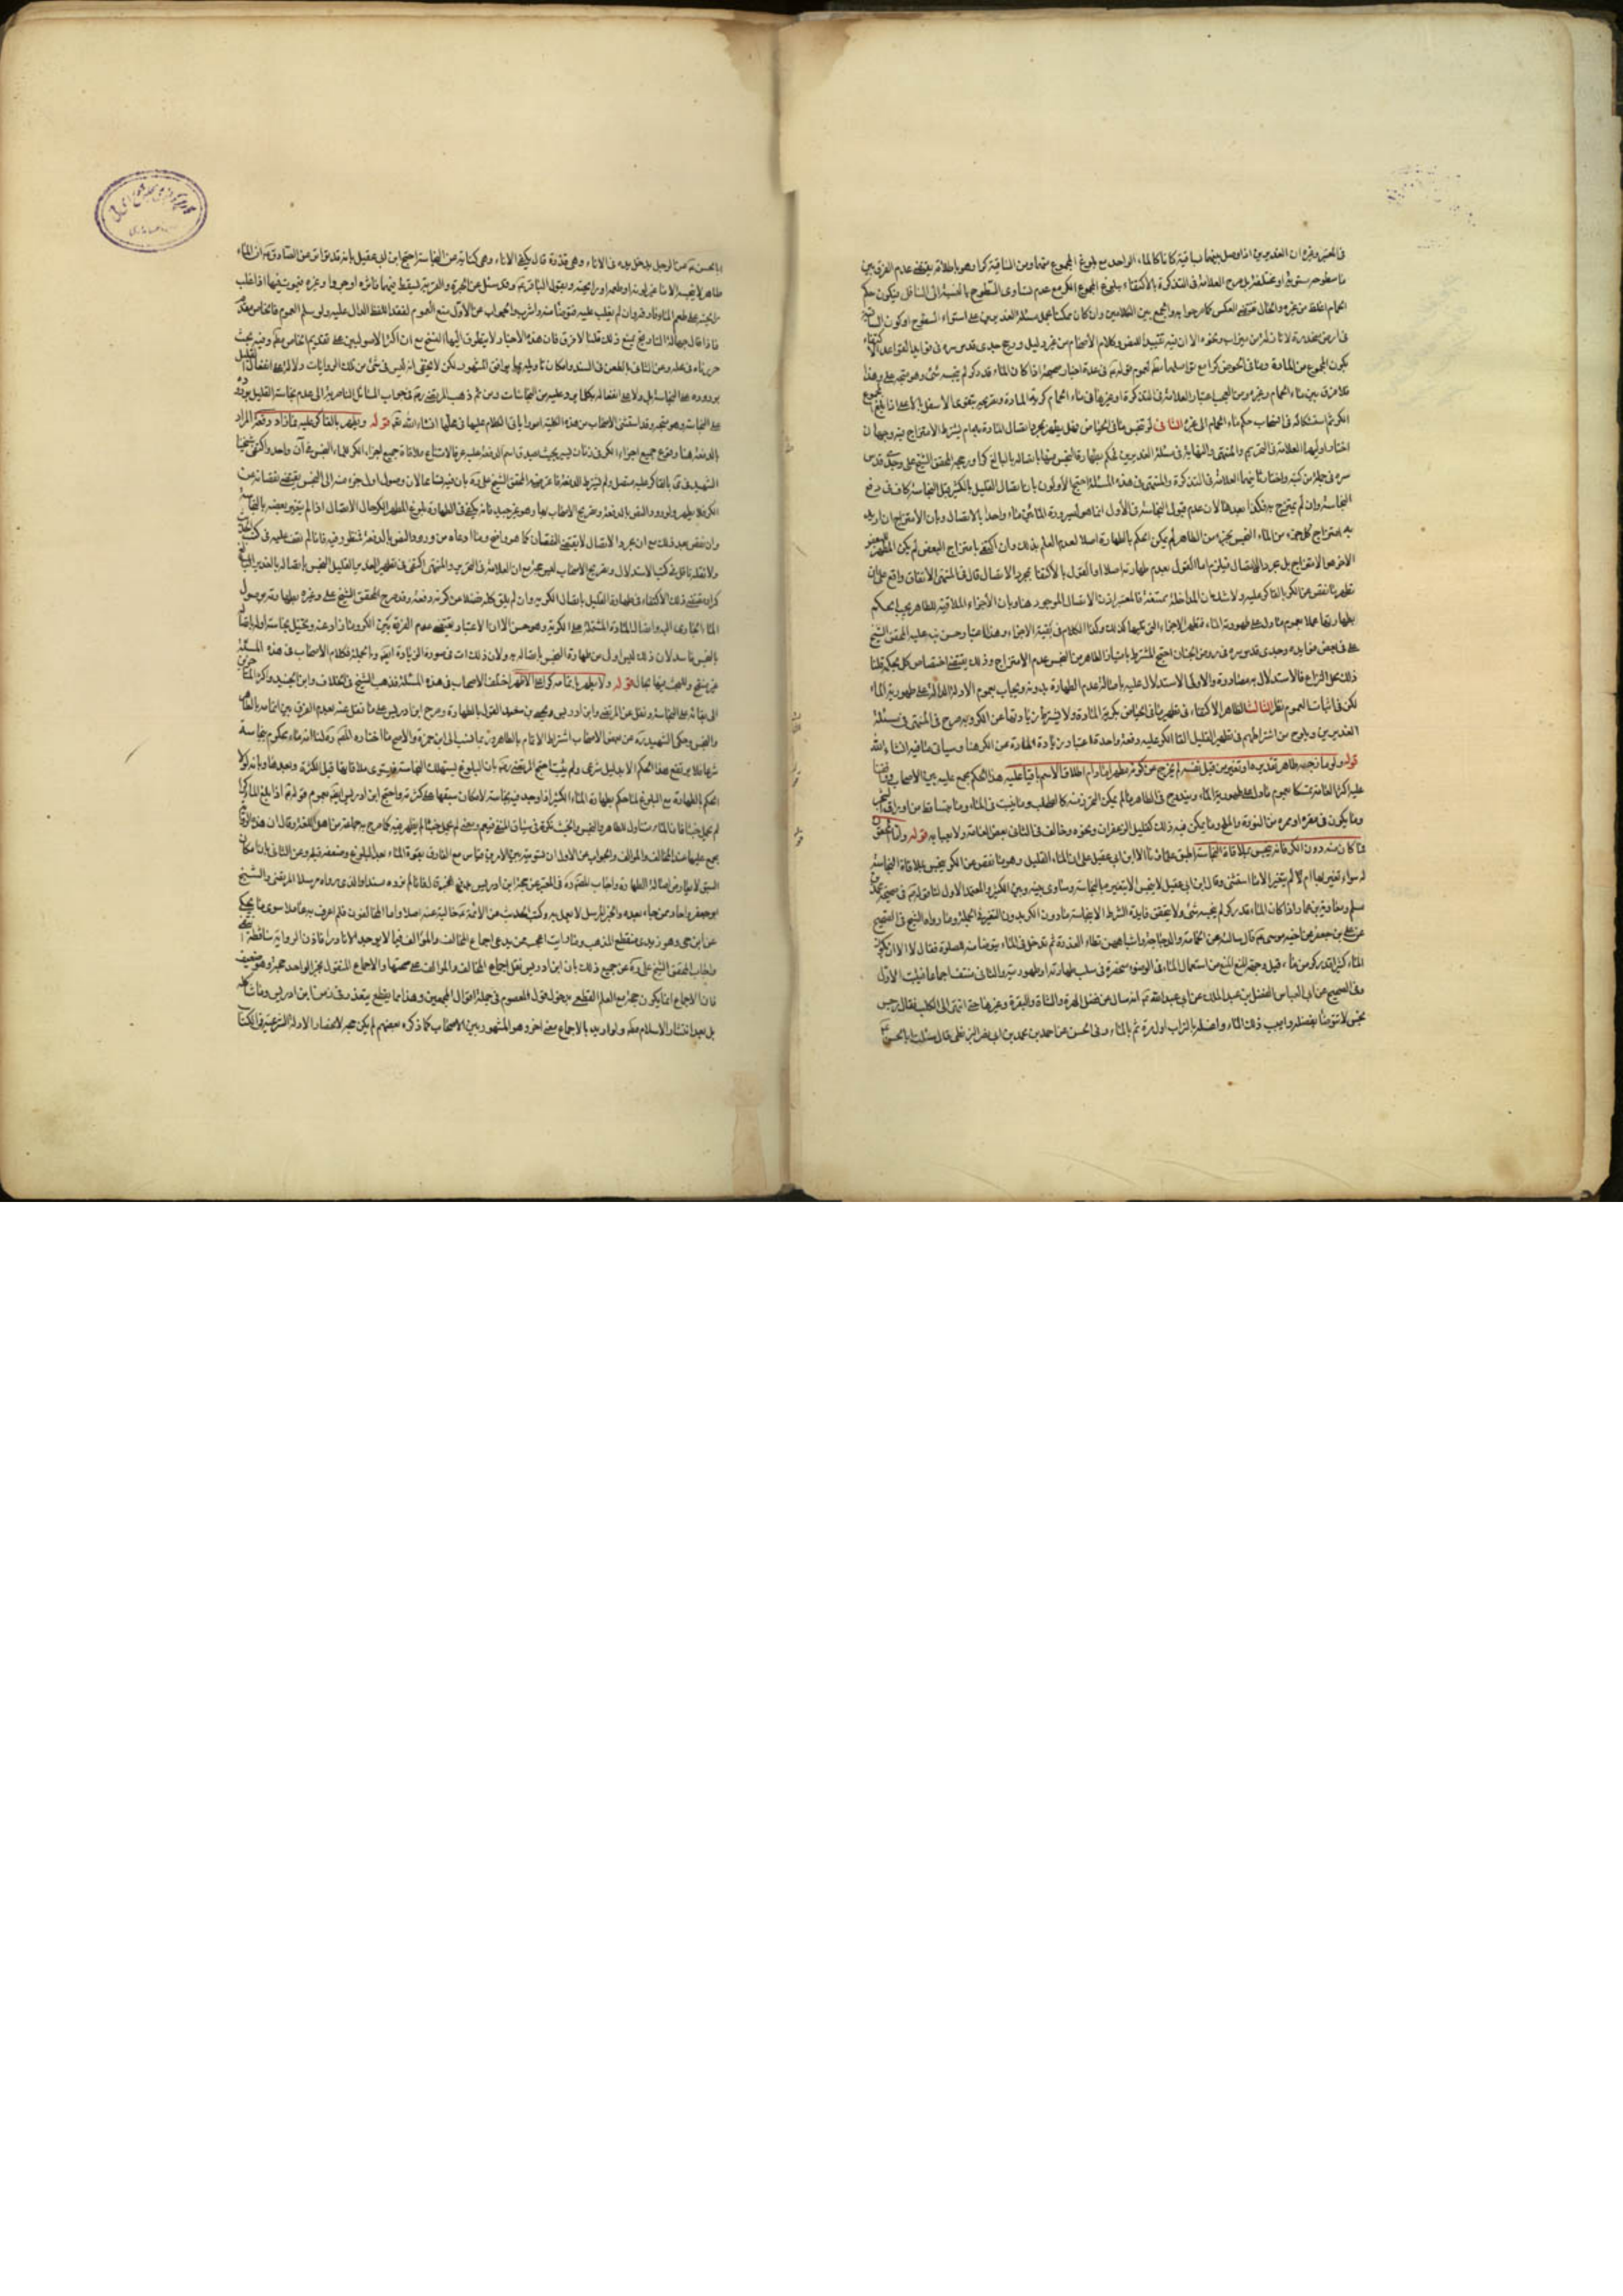 في المعتبر وغيره ان الغديرين اذا وصل بينهما بساقية كانا كالماء الواحد مع بلوغ المجموع منهما ومن الساقية كرا وهو باطلاقه يقتضي عدم الفرق بين
ما سطوحه مستوية او مختلفة بل صرح العلامة في التذكرة بالاكتفاء ببلوغ المجموع الكر مع عدم تساوى السطوح بالنسبة الى السافل فيكون حكم
الحمام اغلظ من غيره والحال يقتضي العكس كما صرحوا به والجمع بين الكلامين وان كان ممكنا بحمل مسئلة الغديرين على استواء السطوح او كون الساقية
في ارض منحدرة لا نازلة من ميزاب ونحوه الا ان فيه تقييدا للنص وكلام الاصحاب من غير دليل ورجح جدى قدس سره في فوايد القواعد الاكتفاء
بكون المجموع من المادة وما في الحوض كرا مع تواصلهما مطلقا لعموم قوله في عدة اخبار صحيحة اذا كان الماء قدر كر لم ينجسه شئ وهو متجه وعلى هذا
فلا فرق بين ماء الحمام وغيره ومن العجب اعتبار العلامة في التذكرة وغيرها في ماء الحمام كرية المادة وتصريحه بتقوى الاسفل بالاعلى اذا بلغ المجموع
الكر ثم استشكاله في انسحاب حكم ماء الحمام الى غيره الثانى لو تنجس ما في الحياض فهل يطهر بمجرد اتصال المادة به ام يشترط الامتزاج فيه وجهان
اختار اولهما العلامة في التحرير والمنتهى والنهاية في مسئلة الغديرين فحكم بطهارة النجس منهما باتصاله بالبالغ كرا ورجحه المحقق الشيخ على وجدى قدس
سره في جملة من كتبه واختار ثانيهما العلامة في التذكرة والمنتهى في هذه المسئلة احتج الاولون بان اتصال القليل بالكثير قبل النجاسة كاف في دفع
النجاسة وان لم يمتزج به فكذا بعدها لان عدم قبول النجاسة في الاول انما هو لصيرورة المائين ماء واحدا بالاتصال وبان الامتزاج ان اريد
به امتزاج كل جزء من الماء النجس بجزء من الطاهر لم يكن الحكم بالطهارة اصلا لعدم العلم بذلك وان اكتفى بامتزاج البعض لم يكن المطهر للبعض
الاخر هو الامتزاج بل مجرد الاتصال فيلزم اما القول بعدم طهارته اصلا او القول بالاكتفاء بمجرد الاتصال قال في المنتهى الاتفاق واقع على ان
تطهير ما نقص عن الكر بالقاء كر عليه ولا شك ان المداخلة ممتنعة فالمعتبر اذن الاتصال الموجود هنا وبان الاجزاء الملاقية للطاهر يجب الحكم
بطهارتها عملا بعموم ما دل على طهورية الماء فتطهر الاجزاء التي تليها كذلك وكذا الكلام في بقية الاجزاء وهذا اعتبار حسن نبه عليه المحقق الشيخ
على في بعض فوايده وجدى قدس سره في روض الجنان احتج المشترط بامتياز الطاهر من النجس عدم الامتزاج وذلك يقتضي اختصاص كل بحكمه قلنا
ذلك محل النزاع فالاستدلال به مصادرة والاولى الاستدلال عليه باصالة عدم الطهارة بدونه ويجاب بعموم الادلة الدالة على طهورية الماء
لكن في اثبات العموم نظر الثالث الظاهر الاكتفاء في تطهير ما في الحياض بكرية المادة ولا يشترط زيادتها عن الكر وبه صرح في المنتهى في مسئلة
الغديرين ويلوح من اشتراطهم في تطهير القليل القاء الكر عليه دفعة واحدة اعتبار زيادة المادة عن الكر هنا وسياتي ما فيه انشاء الله
قوله ولو مازجه طاهر فغيره او تغير من قبل نفسه لم يخرج عن كونه مطهرا ما دام اطلاق الاسم باقيا عليه هذا الحكم مجمع عليه بين الاصحاب وافقنا
عليه اكثر العامة تمسكا بعموم ما دل على طهورية الماء ويندرج في الطاهر ما لم يمكن التحرز منه كالطحلب وما ينبت في الماء وما يتساقط من اوراق الشجر
وما يكون في مقره او ممره من النورة والملح وما يمكن فيه ذلك كقليل الزعفران ونحوه وخالف في الثانى بعض العامة ولا عبرة به قوله واما المحقون
فما كان منه دون الكر فانه ينجس بملاقاة النجاسة اطبق علماؤنا الا ابن ابي عقيل على ان الماء القليل وهو ما نقص عن الكر ينجس بملاقاة النجاسة
له سواء تغير بها ام لا لم يتغير الا ما استثنى وقال ابن ابى عقيل لا ينجس الا بتغيره بالنجاسة وساوى بينه وبين الكثير والمعتمد الاول لنا قوله في صحيحة محمد بن
مسلم ومعاوية بن عمار اذا كان الماء قدر كر لم ينجسه شئ ولا يتحقق فايدة الشرط الا بنجاسة ما دون الكر بدون التغير في الجملة وما رواه الشيخ في الصحيح
عن على بن جعفر عن اخيه موسى قال سالته عن الحمامة والدجاجة واشباههن تطاء العذرة ثم تدخل في الماء يتوضا منه للصلوة فقال لا الا ان يكون
الماء كثيرا قدر كر من ماء قيل وجه المنع المنع من استعمال الماء في الوضوء منحصرة في سلب طهارته او طهوريته والثانى منتف اجماعا فيثبت الاول
وفي الصحيح عن ابي العباس الفضل بن عبد الملك عن ابي عبد الله انه سال عن فضل الهرة والشاة والبقرة وغيرها حتى انتهى الى الكلب فقال رجس
نجس لا تتوضأ بفضله واصبب ذلك الماء واغسله بالتراب اول مرة ثم بالماء وفي الحسن عن احمد بن محمد بن ابى نصر البزنطى قال سئلت ابا الحسن
ابا الحسن عن الرجل يدخل يده في الاناء وهي قذرة قال يكفئ الاناء وهي كناية عن النجاسة احتج ابن ابي عقيل بانه قد تواتر عن الصادق ان الماء
طاهر لا ينجسه الا ما غير لونه او طعمه او رائحته وبقول الباقر وقد سئل عن الجرة والقربة تسقط فيهما فارة او جرذ او غيره فيموت فيها اذا غلب
رائحته على طعم الماء فارقه وان لم يغلب عليه فتوضأ منه واشرب والجواب عن الاول منع العموم لفقد اللفظ الدال عليه ولو سلم العموم فالخاص مقدم
فاذا قال جهالة التاريخ يمنع ذلك قلنا لا فرق فان هذه الاخبار لا يتطرق اليها النسخ مع ان اكثر الاصوليين على تقديم الخاص مطلقا وفيه بحث
حررناه في محله وعن الثاني بالطعن في السند وامكان تاويله بما يوافق المشهور لكن لا يخفى انه ليس في شئ من تلك الروايات دلالة على انفعال القليل
بوروده على النجاسة بل ولا على انفعاله بكل ما يرد عليه من النجاسات ومن ثم ذهب المرتضى في جواب المسائل الناصرية الى عدم نجاسة القليل بوروده
على النجاسة وهو متجه وقد استثنى الاصحاب من هذه الكلية امورا ياتى الكلام عليها في محلها انشاء الله قوله ويطهر بالقاء كر عليه فما زاد دفعة المراد
بالدفعة هنا وقوع جميع اجزاء الكر في زمان يسير بحيث يصدق اسم الدفعة عليه عرفا لامتناع ملاقاة جميع اجزاء الكر للماء النجس في آن واحد واكتفى شيخنا
الشهيد في بالقاء كر عليه متصل ولم يشترط الدفعة فاعترضه المحقق الشيخ على بان فيه تسامحا لان وصول اول جزء منه الى النجس يقتضي نقصانه عن
الكر فلا يطهر ولورود النص بالدفعة وتصريح الاصحاب بها وهو غير جيد فانه يكفى في الطهارة بلوغ المطهر الكر حال الاتصال اذا لم يتغير بعضه بالنجاسة
وان نقص بعد ذلك مع ان مجرد الاتصال لا يقتضي النقصان كما هو واضح وما ادعاه من ورود النص بالدفعة منظور فيه فانا لم نقف عليه في كتب الحديث
ولا نقله ناقل في كتب الاستدلال وتصريح الاصحاب ليس حجة مع ان العلامة في التحرير والمنتهى اكتفى في تطهير الغدير القليل النجس باتصاله بالغدير البالغ
كرا ومقتضى ذلك الاكتفاء في طهارة القليل باتصال الكر به وان لم يلق كله فضلا عن كونه دفعة وقد صرح المحقق الشيخ على وغيره بطهارته بوصول
الماء الجارى اليه واتصال المادة المشتملة على الكر به وهو حسن الا ان الاعتبار يقتضي عدم الفرق بين الكر وما زاد عنه وتخيل نجاسة اوله بملاقاة
بالنجس فاسد لان ذلك ليس اولى من طهارة النجس باتصاله به ولان ذلك ات في صورة الزيادة ايضا وبالجملة فكلام الاصحاب في هذه المسئلة
غير منقح وللبحث فيها مجال قوله ولا يطهر باتمامه كرا على الاظهر اختلف الاصحاب في هذه المسئلة فذهب الشيخ في الخلاف وابن الجنيد واكثر المتاخرين
الى بقائه على النجاسة ونقل عن المرتضى وابن ادريس ويحيى بن سعيد القول بالطهارة وصرح ابن ادريس على ما نقل عنه بعدم الفرق بين اتمامه بالطاهر
والنجس وحكى الشهيد عن بعض الاصحاب اشتراط الاتمام بالطاهر وربما نسب الى ابن حمزة والاصح ما اختاره المصنف لنا انه ماء محكوم بنجاسته
شرعا فلا يرتفع هذا الحكم الا بدليل شرعى ولم يثبت احتج المرتضى بان البلوغ يستهلك النجاسة فيستوى ملاقاتها قبل الكثرة وبعدها وبانه لولا
الحكم بالطهارة مع البلوغ لما حكم بطهارة الماء الكثير اذا وجد فيه نجاسة لامكان سبقها على كثرته واحتج ابن ادريس ايضا بعموم قوله اذا بلغ الماء كرا
لم يحمل خبثا فان الماء متناول للطاهر والنجس والخبث نكرة في سياق النفي فيعم ومعنى لم يحمل خبثا لم يظهر فيه كما صرح به جماعة من اهل اللغة وقال ان هذه الرواية
مجمع عليها عند المخالف والموالف والجواب عن الاول ان تسوية بين الامرين قياس مع الفارق بقوة الماء بعد البلوغ وضعفه قبله وعن الثاني بان امكان
السبق لا يعارض اصالة الطهارة واجاب المصنف في المعتبر عن خبر ابن ادريس بدفع الخبر قال فانا لم نروه مسندا والذى رواه مرسلا المرتضى والشيخ
ابو جعفر واحاد ممن جاء بعده والخبر المرسل لا يعمل به وكتب الحديث عن الائمة خالية عنه اصلا واما المخالفون فلم اعرف به عاملا سوى ما يحكى
عن ابن حى وهو زيدى منقطع المذهب وما رايت اعجب ممن يدعى اجماع المخالف والموالف فيما لا يوجد الا نادرا فاذن الرواية ساقطة انتهى
واجاب المحقق الشيخ على عن جميع ذلك بان ابن ادريس نقل اجماع المخالف والموالف على صحتها والاجماع المنقول بخبر الواحد حجة وهو ضعيف
فان الاجماع انما يكون حجة مع العلم القطعى بدخول قول المعصوم في جملة اقوال المجمعين وهذا مما يقطع بتعذره في زمن ابن ادريس وما شاكله
بل بعد انتشار الاسلام مطلقا ولو اريد بالاجماع معنى اخر وهو المشهور بين الاصحاب كما ذكره بعضهم لم يكن حجة لانحصار الادلة الشرعية في الكتاب